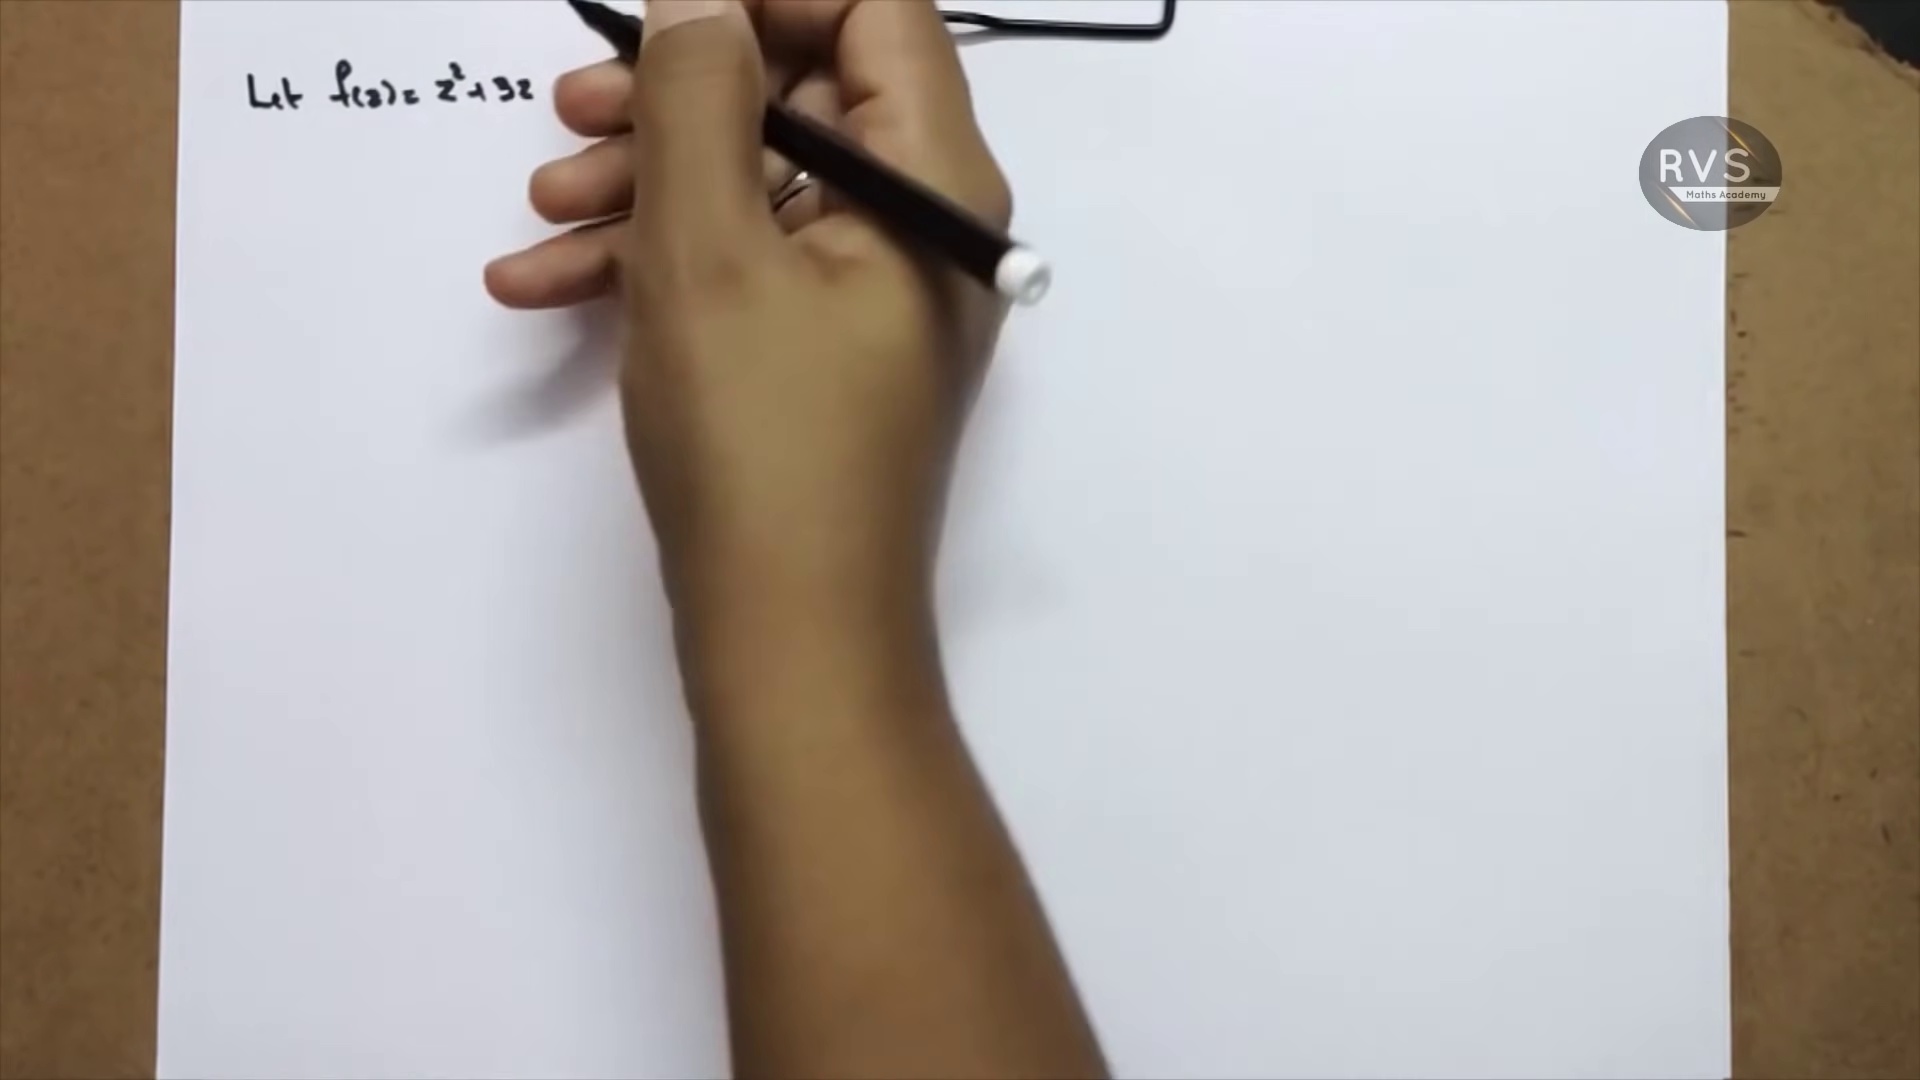 Let f(z) = z² + 3z
RVS
Maths Academy